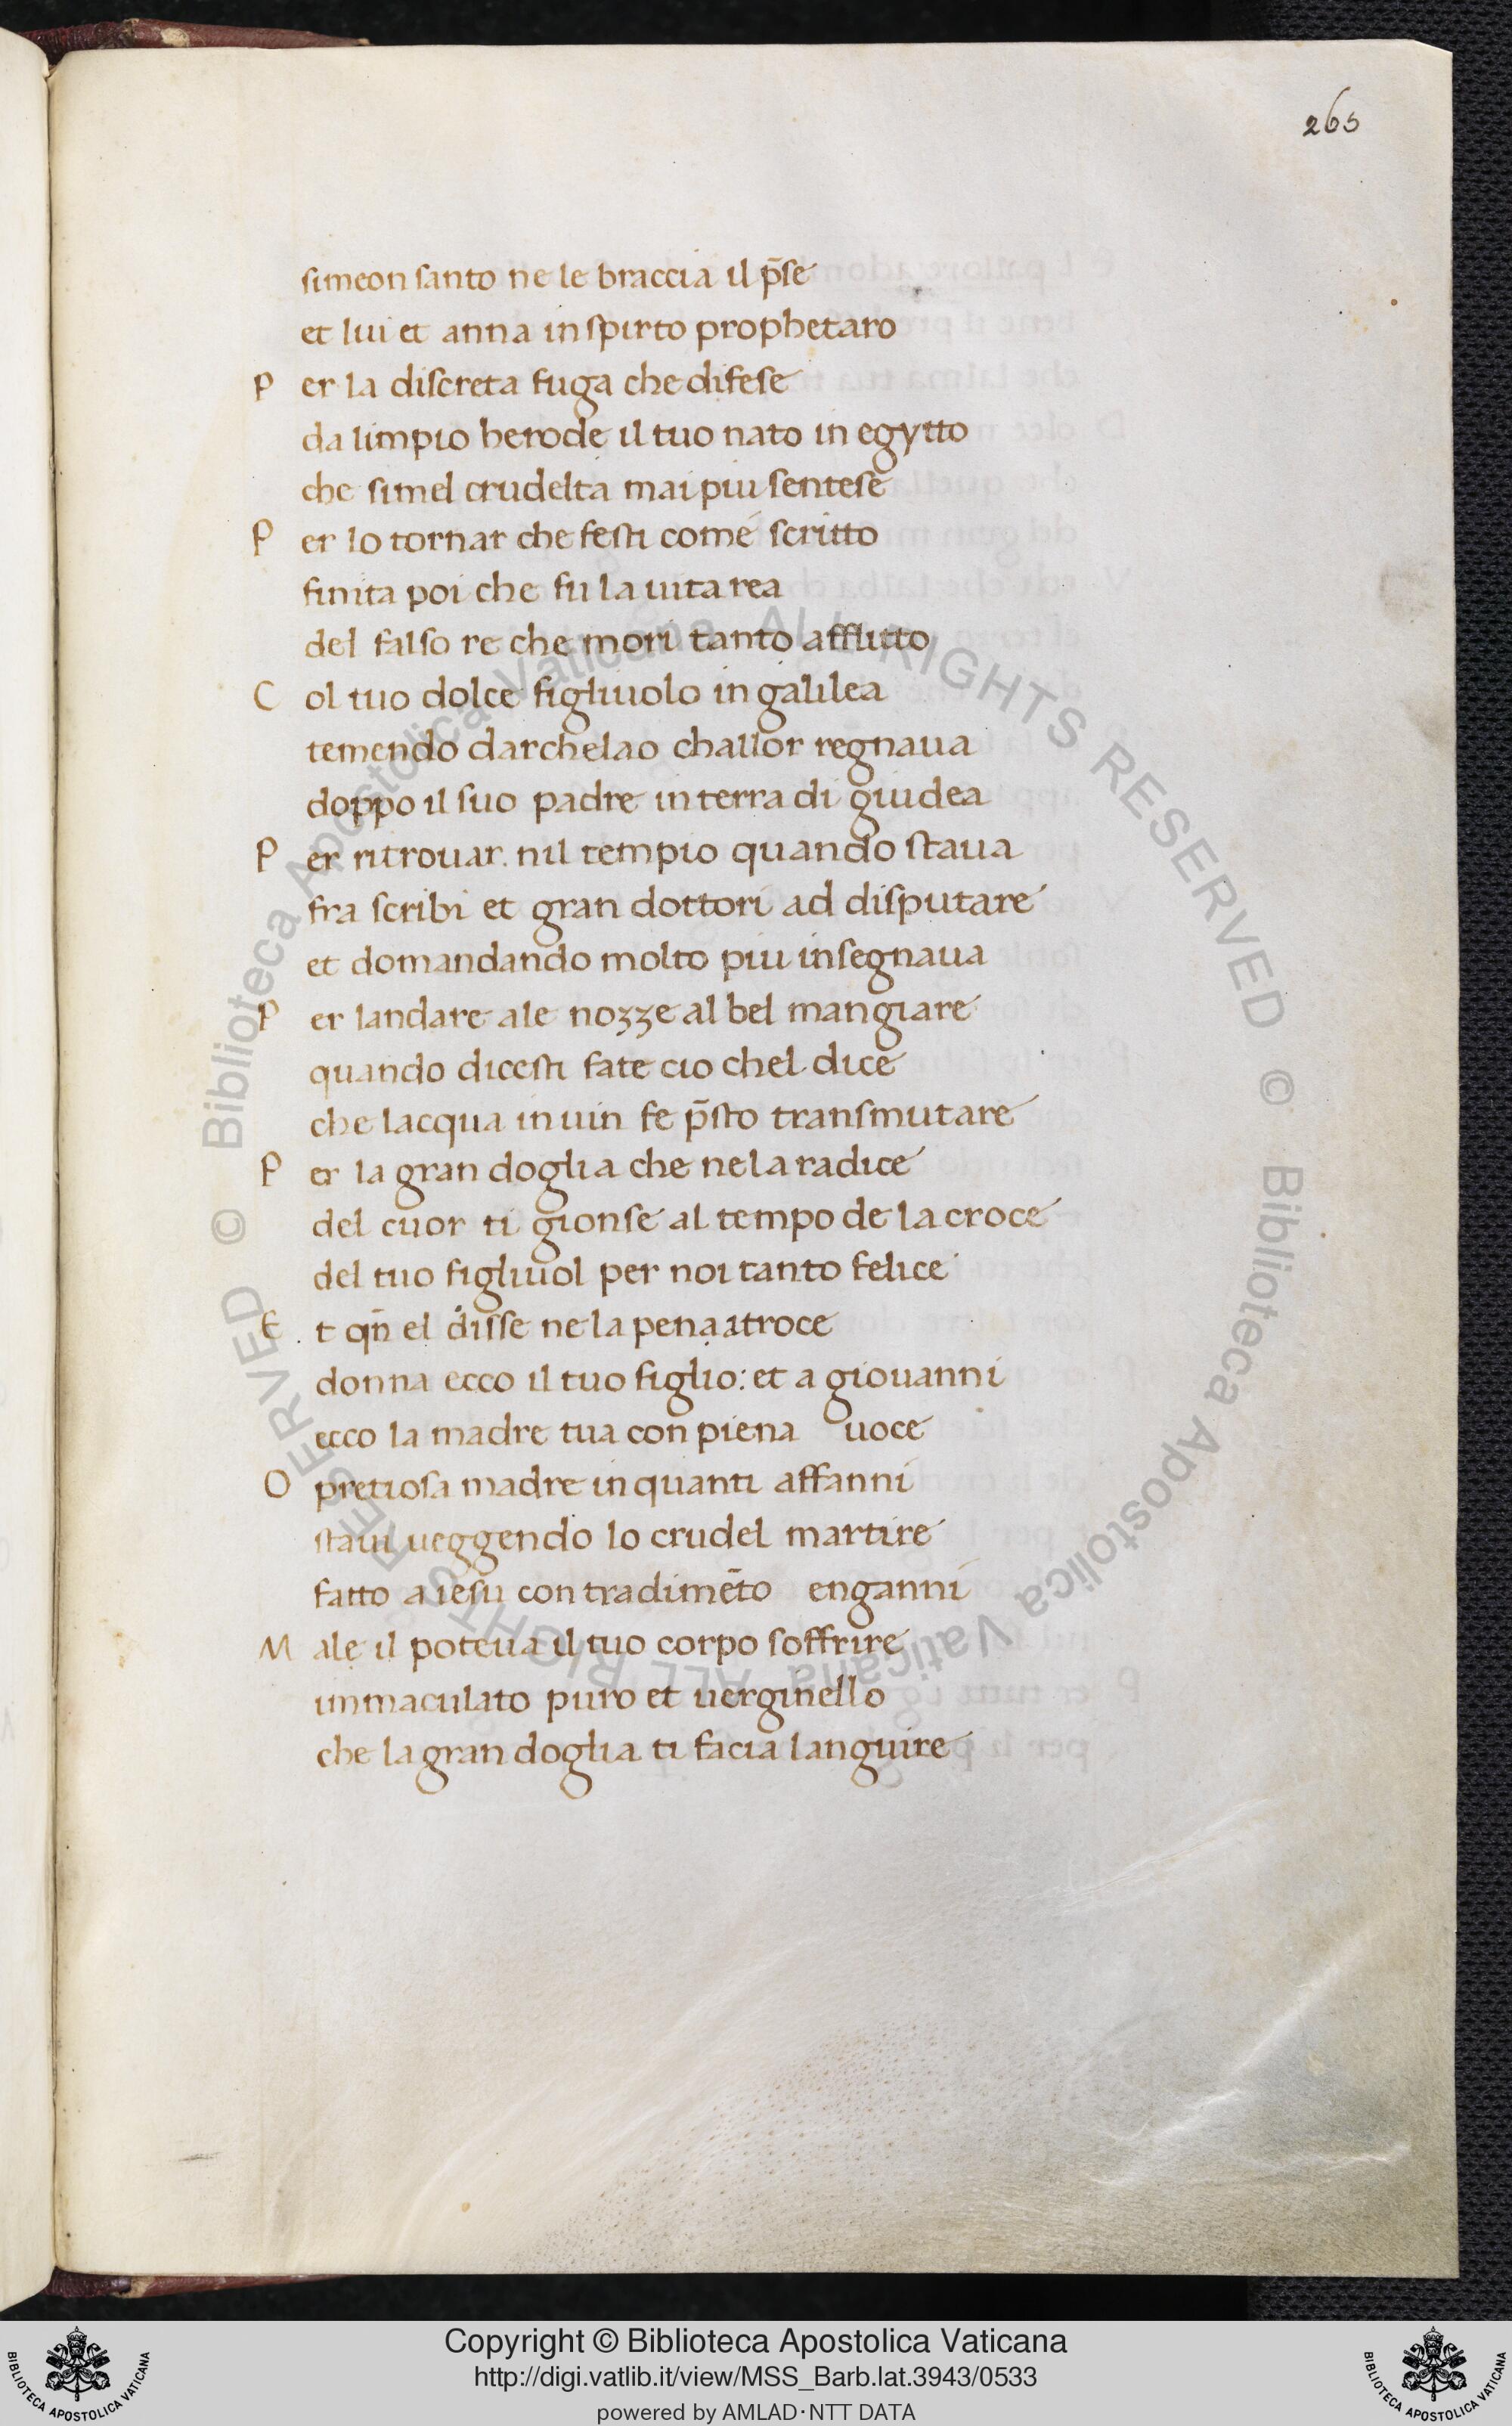 265
simeon santo ne le braccia il p̄se
et lui et anna in spirto prophetaro
P er la discreta fuga che difese
da limpio herode il tuo nato in egytto
che simel crudelta mai piu sentese
P er lo tornar che festi comé scritto
finita poi che fu la uita rea
del falso re che mori tanto afflitto
C ol tuo dolce figliuolo in galilea
temendo darchelao challor regnaua
doppo il suo padre in terra di giudea
P er ritrouar nil tempio quando staua
fra scribi et gran dottori ad disputare
et domandando molto piu insegnaua
P er landare ale nozze al bel mangiare
quando dicesti fate cio chel dice
che lacqua in uin fe p̄sto transmutare
P er la gran doglia che ne la radice
del cuor ti gionse al tempo de la croce
del tuo figliuol per noi tanto felice
E t qn̄ el disse ne la pena atroce
donna ecco il tuo figlio: et a giouanni
ecco la madre tua con piena uoce
O pretiosa madre in quanti affanni
staui ueggendo lo crudel martire
fatto a iesu con tradimēto enganni
M ale il poteua il tuo corpo soffrire
immaculato puro et uerginello
che la gran doglia ti facia languire
© Biblioteca Apostolica Vaticana ALL RIGHTS RESERVED © Biblioteca Apostolica Vaticana ALL RIGHTS RESERVED
BIBLIOTECA APOSTOLICA VATICANA
Copyright © Biblioteca Apostolica Vaticana
http://digi.vatlib.it/view/MSS_Barb.lat.3943/0533
powered by AMLAD·NTT DATA
BIBLIOTECA APOSTOLICA VATICANA